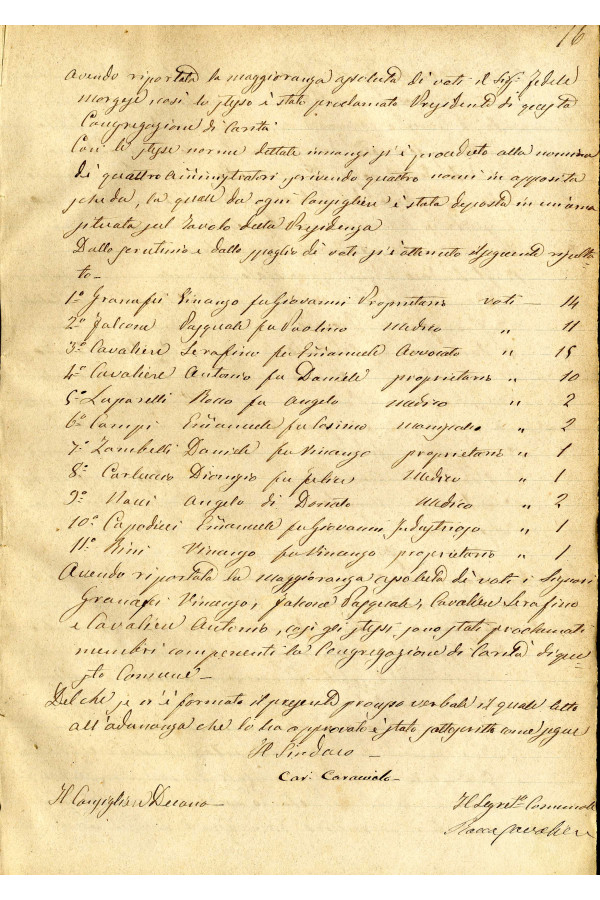 16
avendo riportata la maggioranza assoluta di voti il Sig. Fedele
Morgese così lo stesso è stato proclamato Presidente di questa
Congregazione di Carità
Con le stesse norme dettate innanzi si è proceduto alla nomina
di quattro Amministratori scrivendo quattro nomi in apposita
scheda, la quale da ogni Consigliere è stata deposta in un'urna
situata sul Tavolo della Presidenza
Dallo scrutinio e dallo spoglio di voti si è ottenuto il seguente risulta=
to-
1° Granafei Vincenzo fu Giovanni Proprietario voti - 14
2° Falcone Pasquale fu Paolino Medico " 11
3° Cavaliere Serafino fu Emanuele Avvocato " 15
4° Cavaliere Antonio fu Daniele proprietario " 10
5° Luparelli Rocco fu Angelo Medico " 2
6° Campi Emanuele fu Cosimo " 2
7° Zambelli Daniele fu Vincenzo proprietario " 1
8° Carluccio Dionigio fu Felice Medico " 1
9° Nacci Angelo di Donato Medico " 2
10° Capodieci Emanuele fu Giovanni Industrioso " 1
11° Rini Vincenzo fu Vincenzo proprietario " 1
Avendo riportata la maggioranza assoluta di voti i Signori
Granafei Vincenzo, Falcone Pasquale, Cavaliere Serafino
e Cavaliere Antonio, così gli stessi sono stati proclamati
membri componenti la Congregazione di Carità di que=
sto Comune-
Del che se n'è formato il presente processo verbale il quale letto
all'adunanza che lo ha approvato è stato sottoscritto come segue
Il Sindaco -
Cav. Caracciolo -
Il Consigliere Decano -
Il Segret.o Comunale
Rocco Cavaliere